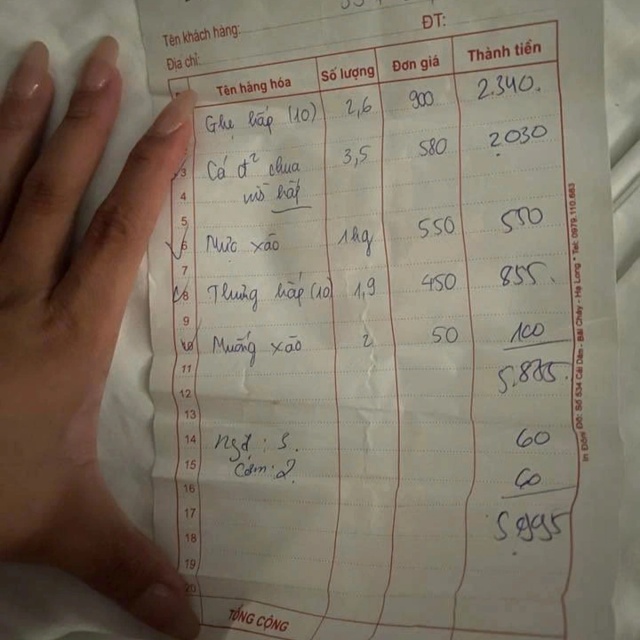 Tên khách hàng:
ĐT:
Địa chỉ:
Tên hàng hóa Số lượng Đơn giá Thành tiền
Ghẹ hấp (10) 2,6 900 2.340.
3 Cá chua 3,5 580 2.030
4 mò hấp
5
6 Mực xào 1kg 550 550
7
8 Thưng hấp (10) 1,9 450 855.
9
10 Muống xào 2 50 100
11 5.875.
12
13
14 Ngd: 3. 60
15 Cơm: 2
16 60
17
18 5.995
19
20
TỔNG CỘNG
In Đôn Đô: Số 534 Cái Dăm - Bãi Cháy - Hạ Long * Tel: 0979.110.683